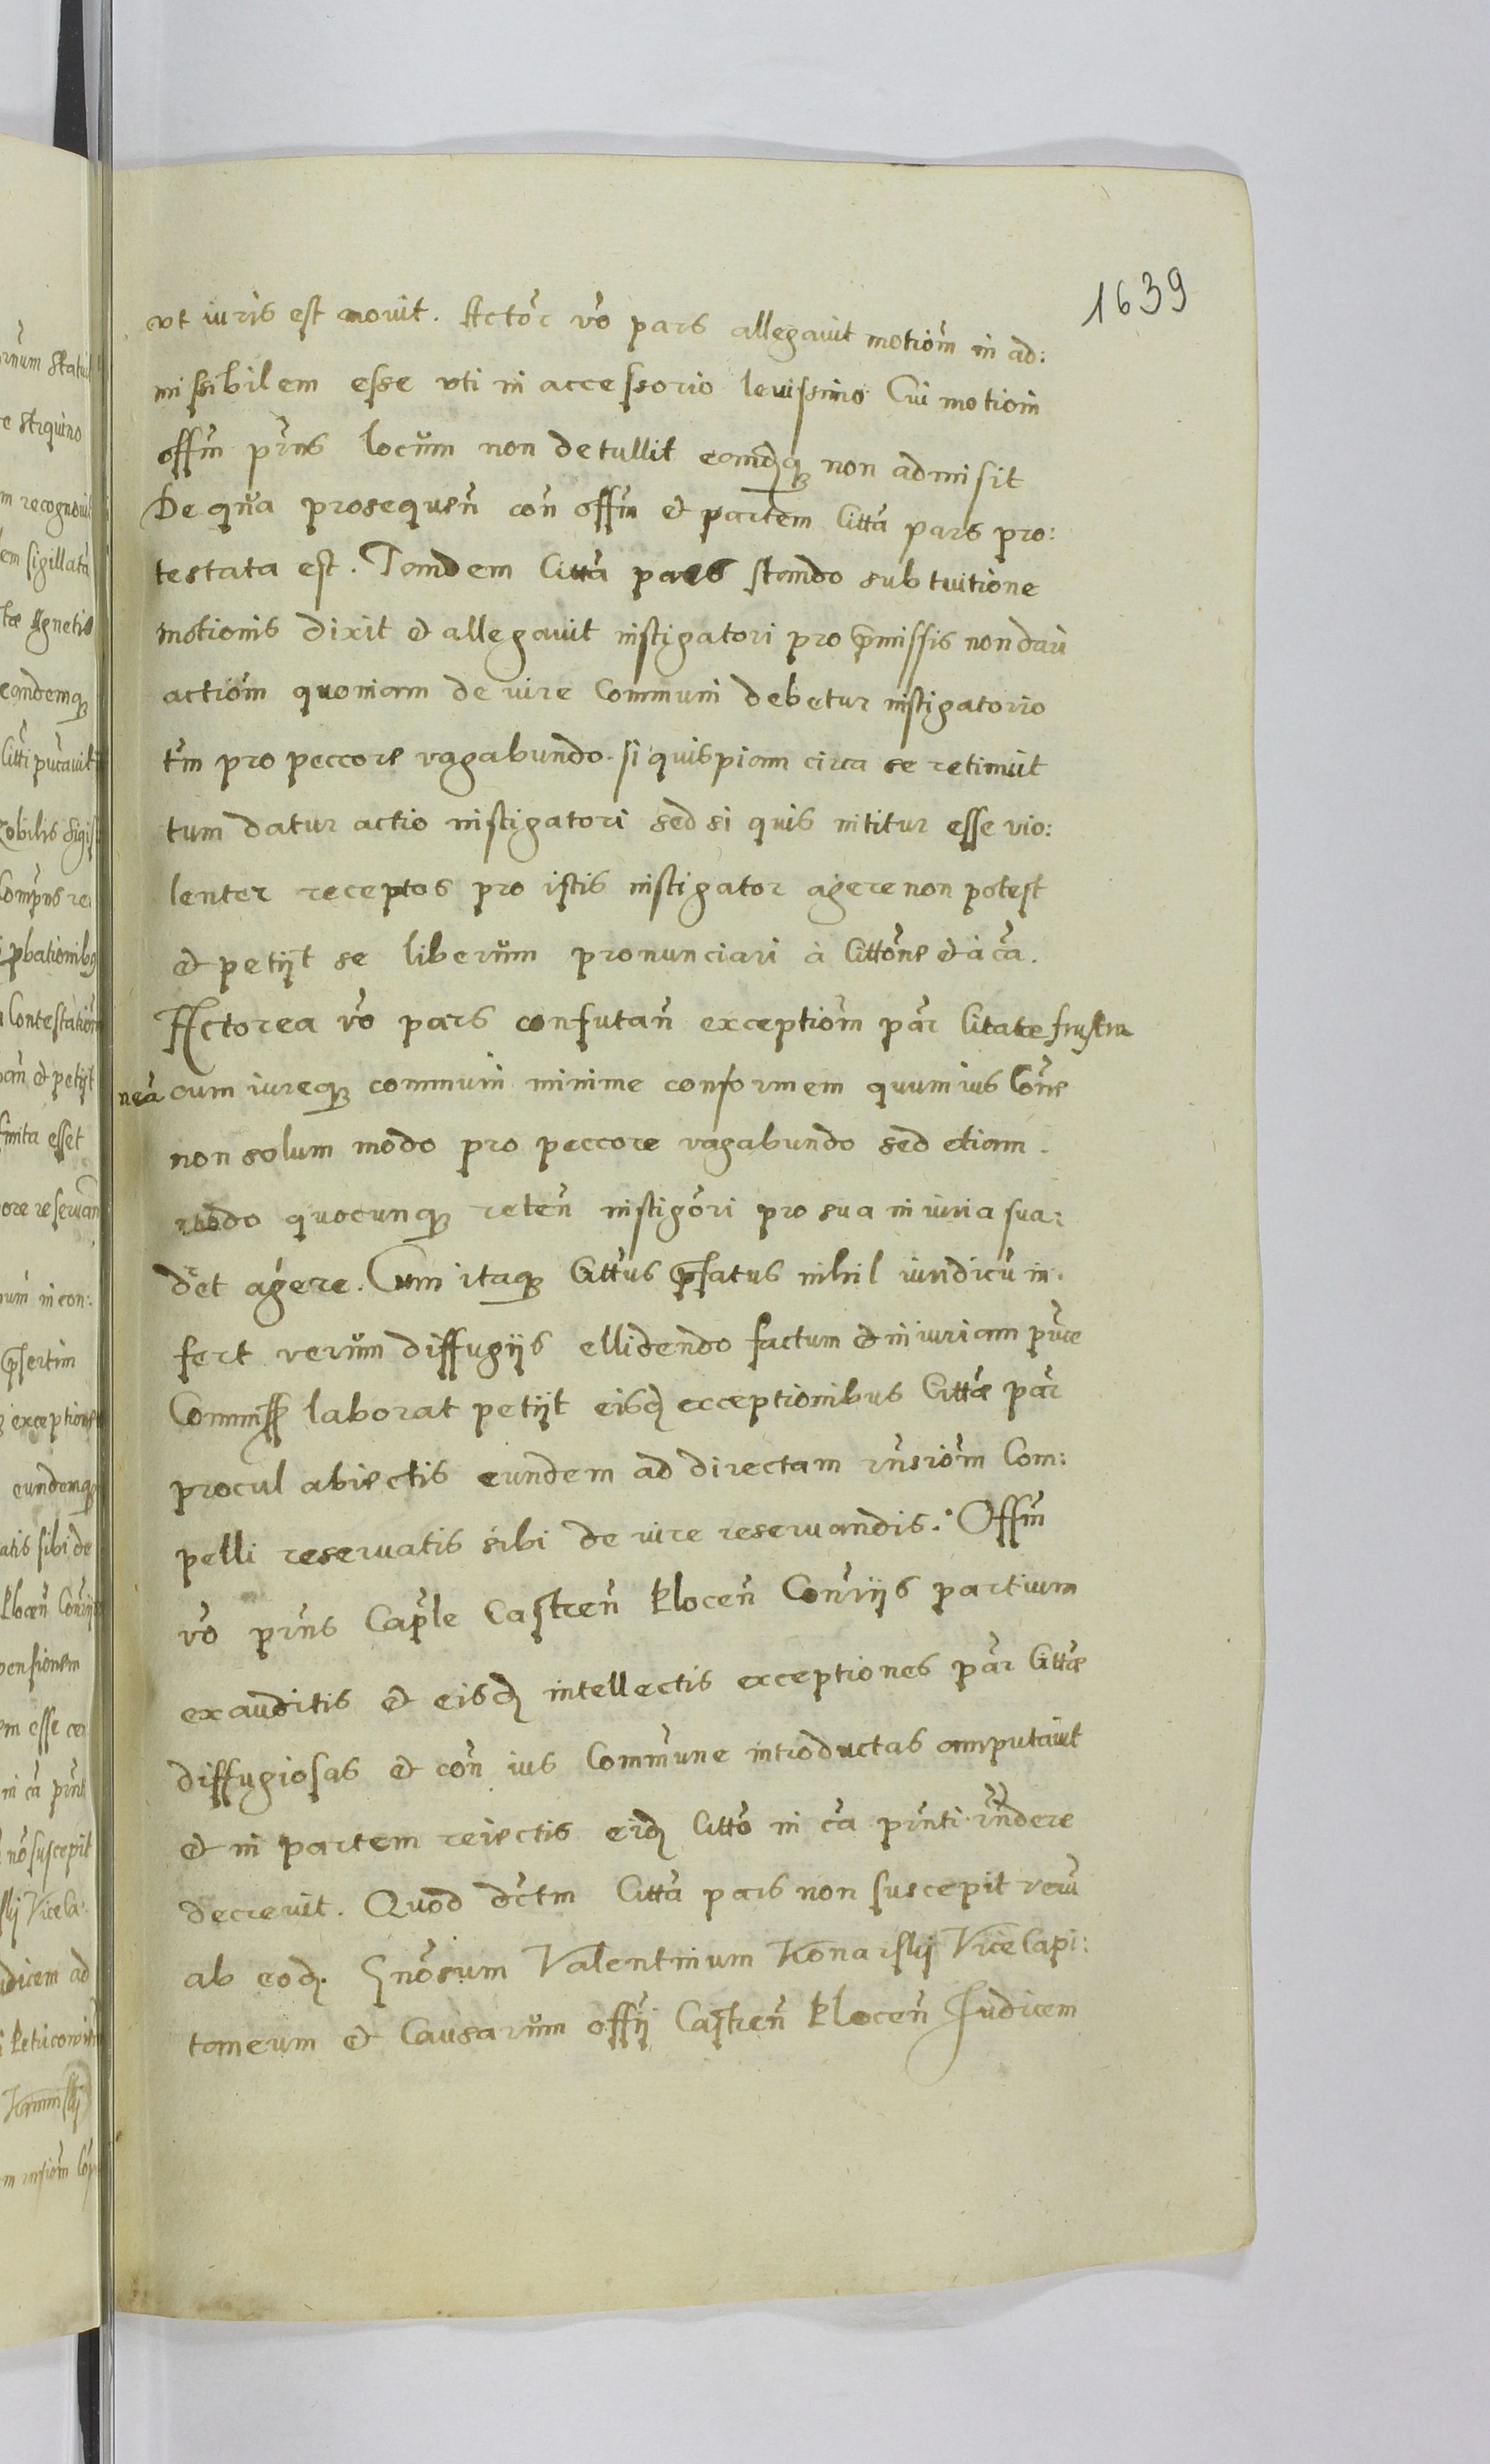 1639
ut iuris est movit. Actor̃ vo pars allegavit motiom̃ in ad:
missibilem esse uti in accessorio levissimo Cui motioni
offm̃ prñs locum non detullit eamq̃q non admisit
De qua prosequeñ coñ offm̃ et partem Citta pars pro:
testata est. Tandem Citta pars stando sub tuitione
motionis dixit et allegavit instigatori pro p̃missis non dari
actiom̃ quoniam de iure Communi debetur instigatorio
tm̃ pro peccore vagabundo. si quispiam circa se retinuit
tum datur actio instigatori sed si quis nititur esse vio:
lenter receptos pro istis instigator agere non potest
et petijt se liberum pronunciari à Cittoñe et à cã.
Actorea vo pars confutañ exceptiom̃ par̃ Citatæ frustra
neã cum iureq communi minime conformem quum ius Coñe
non solum modo pro peccore vagabundo sed etiam.
modo quocunq reteñ instigori pro sua iniuria sua:
det agere. Cum itaq Cittus p̃fatus nihil iuridicũ in.
fert verum diffugijs ellidendo factum et iniuriam prvce
Commiss laborat petijt eisd exceptionibus Cittæ par̃
procul abiectis eundem ad directam rñsiom̃ Com:
pelli reservatis sibi de iure reservandis. Offm̃
vo prñs Cap̃le Castreñ Ploceñ Conr̃ijs partium
exauditis et eisd intellectis exceptiones par̃ Cittæ
diffugiosas et coñ ius Commune introductas amputavit
et in partem reiectis eid Citto in cã prñti rñdere
decrevit. Quod dctm̃ Citta pars non suscepit verũ
ab eod. Gnosum Valentinum Konarskij ViceCapi:
taneum et Causarum offij Castreñ Ploceñ Iudicem